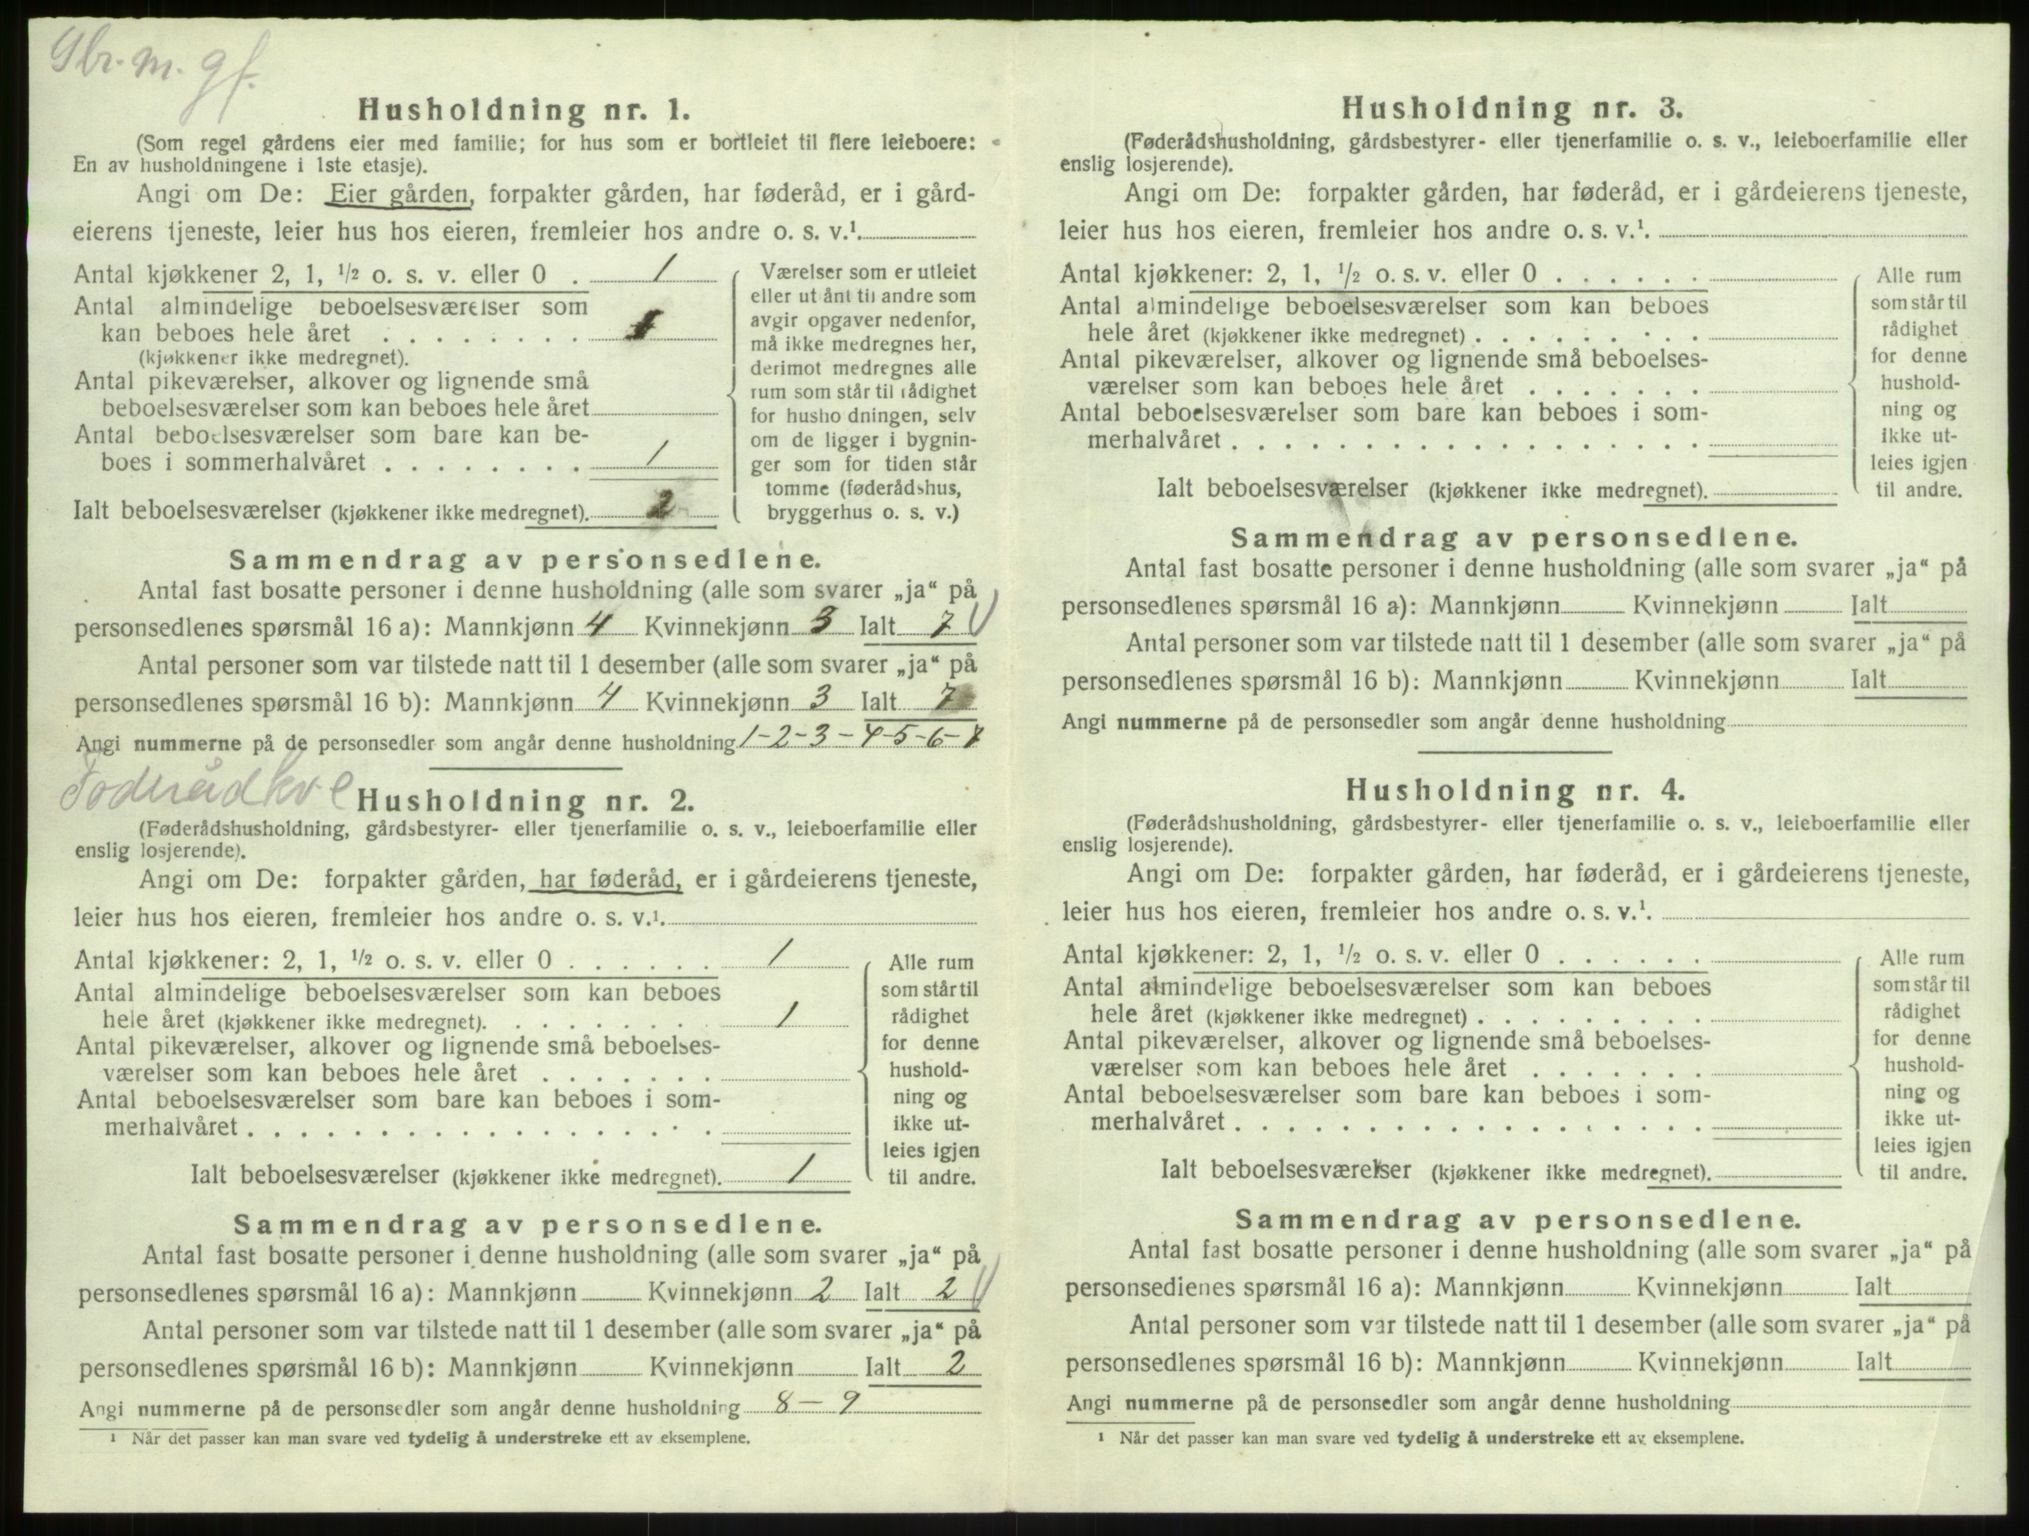 Gbr. m. gf.
Husholdning nr. 1.
(Som regel gårdens eier med familie; for hus som er bortleiet til flere leieboere:
En av husholdningene i 1ste etasje).
Angi om De: Eier gården, forpakter gården, har føderåd, er i gård-
eierens tjeneste, leier hus hos eieren, fremleier hos andre o. s. v.¹.
Antal kjøkkener 2, 1, ½ o. s. v. eller 0 . 1
Antal almindelige beboelsesværelser som
kan beboes hele året . . . . . . . . 1
(kjøkkener ikke medregnet).
Antal pikeværelser, alkover og lignende små
beboelsesværelser som kan beboes hele året
Antal beboelsesværelser som bare kan be-
boes i sommerhalvåret . . . . . . . . 1
Ialt beboelsesværelser (kjøkkener ikke medregnet). 2
Værelser som er utleiet
eller utlånt til andre som
avgir opgaver nedenfor,
må ikke medregnes her,
derimot medregnes alle
rum som står til rådighet
for husholdningen, selv
om de ligger i bygnin-
ger som for tiden står
tomme (føderådshus,
bryggerhus o. s. v.)
Sammendrag av personsedlene.
Antal fast bosatte personer i denne husholdning (alle som svarer „ja“ på
personsedlenes spørsmål 16 a): Mannkjønn 4 Kvinnekjønn 3 Ialt 7
Antal personer som var tilstede natt til 1 desember (alle som svarer „ja“ på
personsedlenes spørsmål 16 b): Mannkjønn 4 Kvinnekjønn 3 Ialt 7
Angi nummerne på de personsedler som angår denne husholdning 1-2-3-4-5-6-7
Foderådkve
Husholdning nr. 2.
(Føderådshusholdning, gårdsbestyrer- eller tjenerfamilie o. s. v., leieboerfamilie eller
enslig losjerende).
Angi om De: forpakter gården, har føderåd, er i gårdeierens tjeneste,
leier hus hos eieren, fremleier hos andre o. s. v.¹.
Antal kjøkkener: 2, 1, ½ o. s. v. eller 0 . . . . . . 1
Antal almindelige beboelsesværelser som kan beboes
hele året (kjøkkener ikke medregnet). . . . . . . . . 1
Antal pikeværelser, alkover og lignende små beboelses-
værelser som kan beboes hele året . . . . . . .
Antal beboelsesværelser som bare kan beboes i som-
merhalvåret . . . . . . . . . . . . . . . . . .
Ialt beboelsesværelser (kjøkkener ikke medregnet). 1
Alle rum
som står til
rådighet
for denne
hushold-
ning og
ikke ut-
leies igjen
til andre.
Sammendrag av personsedlene.
Antal fast bosatte personer i denne husholdning (alle som svarer „ja“ på
personsedlenes spørsmål 16 a): Mannkjønn Kvinnekjønn 2 Ialt 2
Antal personer som var tilstede natt til 1 desember (alle som svarer „ja“ på
personsedlenes spørsmål 16 b): Mannkjønn Kvinnekjønn Ialt 2
Angi nummerne på de personsedler som angår denne husholdning 8-9
¹ Når det passer kan man svare ved tydelig å understreke ett av eksemplene.
Husholdning nr. 3.
(Føderådshusholdning, gårdsbestyrer- eller tjenerfamilie o. s. v., leieboerfamilie eller
enslig losjerende).
Angi om De: forpakter gården, har føderåd, er i gårdeierens tjeneste,
leier hus hos eieren, fremleier hos andre o. s. v.¹.
Antal kjøkkener: 2, 1, ½ o. s. v. eller 0 . . . . . .
Antal almindelige beboelsesværelser som kan beboes
hele året (kjøkkener ikke medregnet) . . . . . . . . .
Antal pikeværelser, alkover og lignende små beboelses-
værelser som kan beboes hele året . . . . . . .
Antal beboelsesværelser som bare kan beboes i som-
merhalvåret . . . . . . . . . . . . . . . . . .
Ialt beboelsesværelser (kjøkkener ikke medregnet).
Alle rum
som står til
rådighet
for denne
hushold-
ning og
ikke ut-
leies igjen
til andre.
Sammendrag av personsedlene.
Antal fast bosatte personer i denne husholdning (alle som svarer „ja“ på
personsedlenes spørsmål 16 a): Mannkjønn Kvinnekjønn Ialt
Antal personer som var tilstede natt til 1 desember (alle som svarer „ja“ på
personsedlenes spørsmål 16 b): Mannkjønn Kvinnekjønn Ialt
Angi nummerne på de personsedler som angår denne husholdning
Husholdning nr. 4.
(Føderådshusholdning, gårdsbestyrer- eller tjenerfamilie o. s. v., leieboerfamilie eller
enslig losjerende).
Angi om De: forpakter gården, har føderåd, er i gårdeierens tjeneste,
leier hus hos eieren, fremleier hos andre o. s. v.¹.
Antal kjøkkener: 2, 1, ½ o. s. v. eller 0 . . . . . .
Antal almindelige beboelsesværelser som kan beboes
hele året (kjøkkener ikke medregnet) . . . . . . . . .
Antal pikeværelser, alkover og lignende små beboelses-
værelser som kan beboes hele året . . . . . . .
Antal beboelsesværelser som bare kan beboes i som-
merhalvåret . . . . . . . . . . . . . . . . . .
Ialt beboelsesværelser (kjøkkener ikke medregnet).
Alle rum
som står til
rådighet
for denne
hushold-
ning og
ikke ut-
leies igjen
til andre.
Sammendrag av personsedlene.
Antal fast bosatte personer i denne husholdning (alle som svarer „ja“ på
personsedlenes spørsmål 16 a): Mannkjønn Kvinnekjønn Ialt
Antal personer som var tilstede natt til 1 desember (alle som svarer „ja“ på
personsedlenes spørsmål 16 b): Mannkjønn Kvinnekjønn Ialt
Angi nummerne på de personsedler som angår denne husholdning
¹ Når det passer kan man svare ved tydelig å understreke ett av eksemplene.